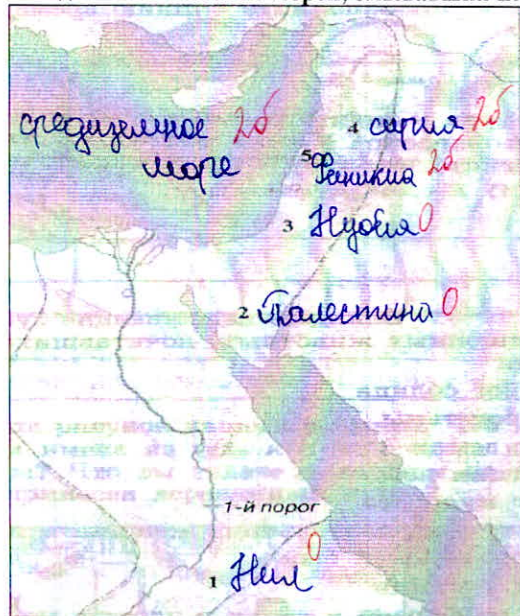 средиземное 2б
море
4 сирия 2б
5 Финикиа 2б
3 Нубия 0
2 Палестина 0
1-й порог
0
1 Нил